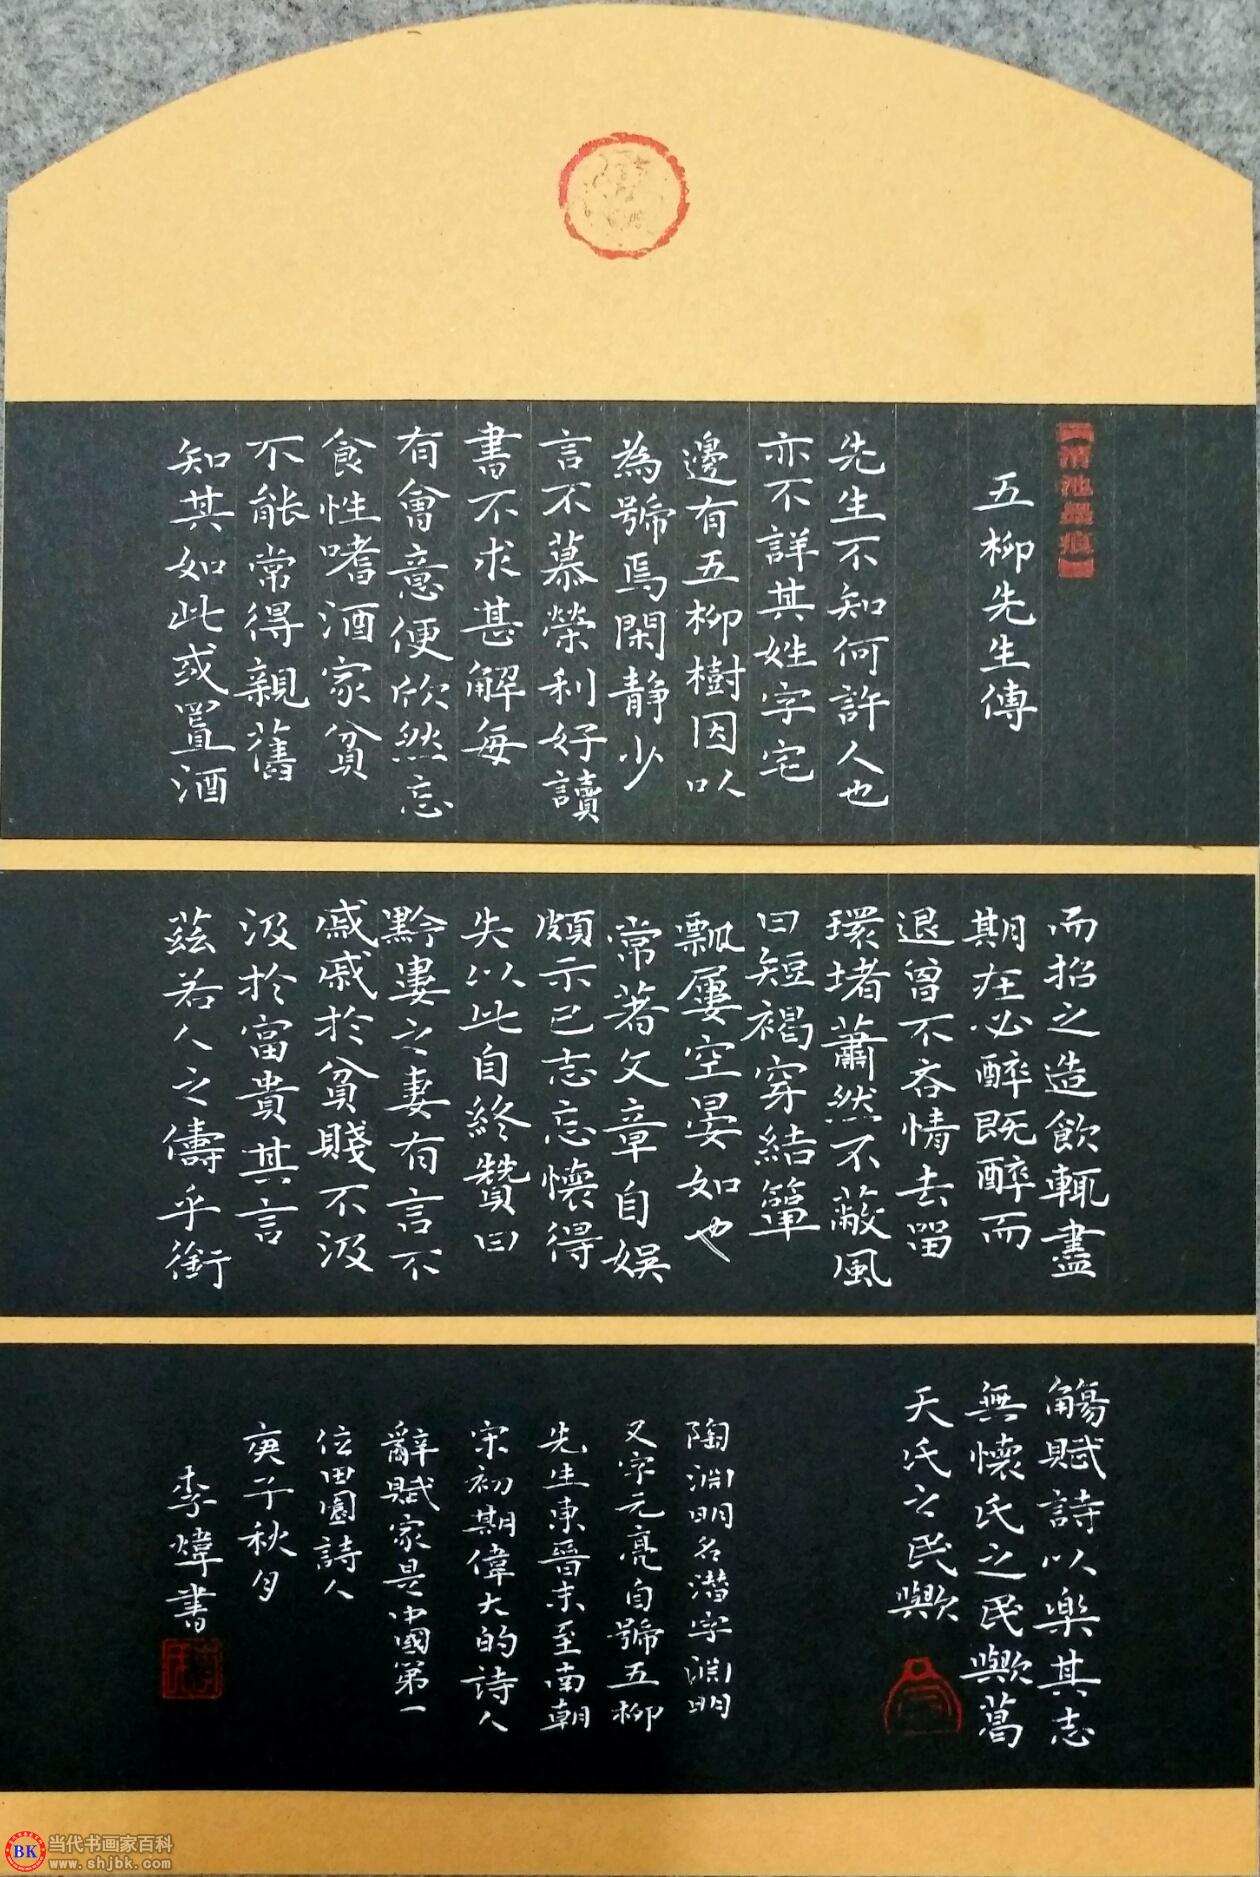 【清池墨痕】
五柳先生傳
先生不知何許人也
亦不詳其姓字宅
邊有五柳樹因以
為號焉閑静少
言不慕榮利好讀
書不求甚解每
有會意便欣然忘
食性嗜酒家貧
不能常得親舊
知其如此或置酒
而招之造飲輒盡
期在必醉既醉而
退曾不吝情去留
環堵蕭然不蔽風
日短褐穿結簞
瓢屢空晏如也
常著文章自娛
頗示己志忘懷得
失以此自終贊曰
黔婁之妻有言不
戚戚於貧賤不汲
汲於富貴其言
茲若人之儔乎銜
觴賦詩以樂其志
無懷氏之民歟葛
天氏之民歟
陶淵明名潛字淵明
又字元亮自號五柳
先生東晉末至南朝
宋初期偉大的詩人
辭賦家是中國第一
位田園詩人
庚子秋月
李煒書
BK 当代书画家百科
www.shjbk.com